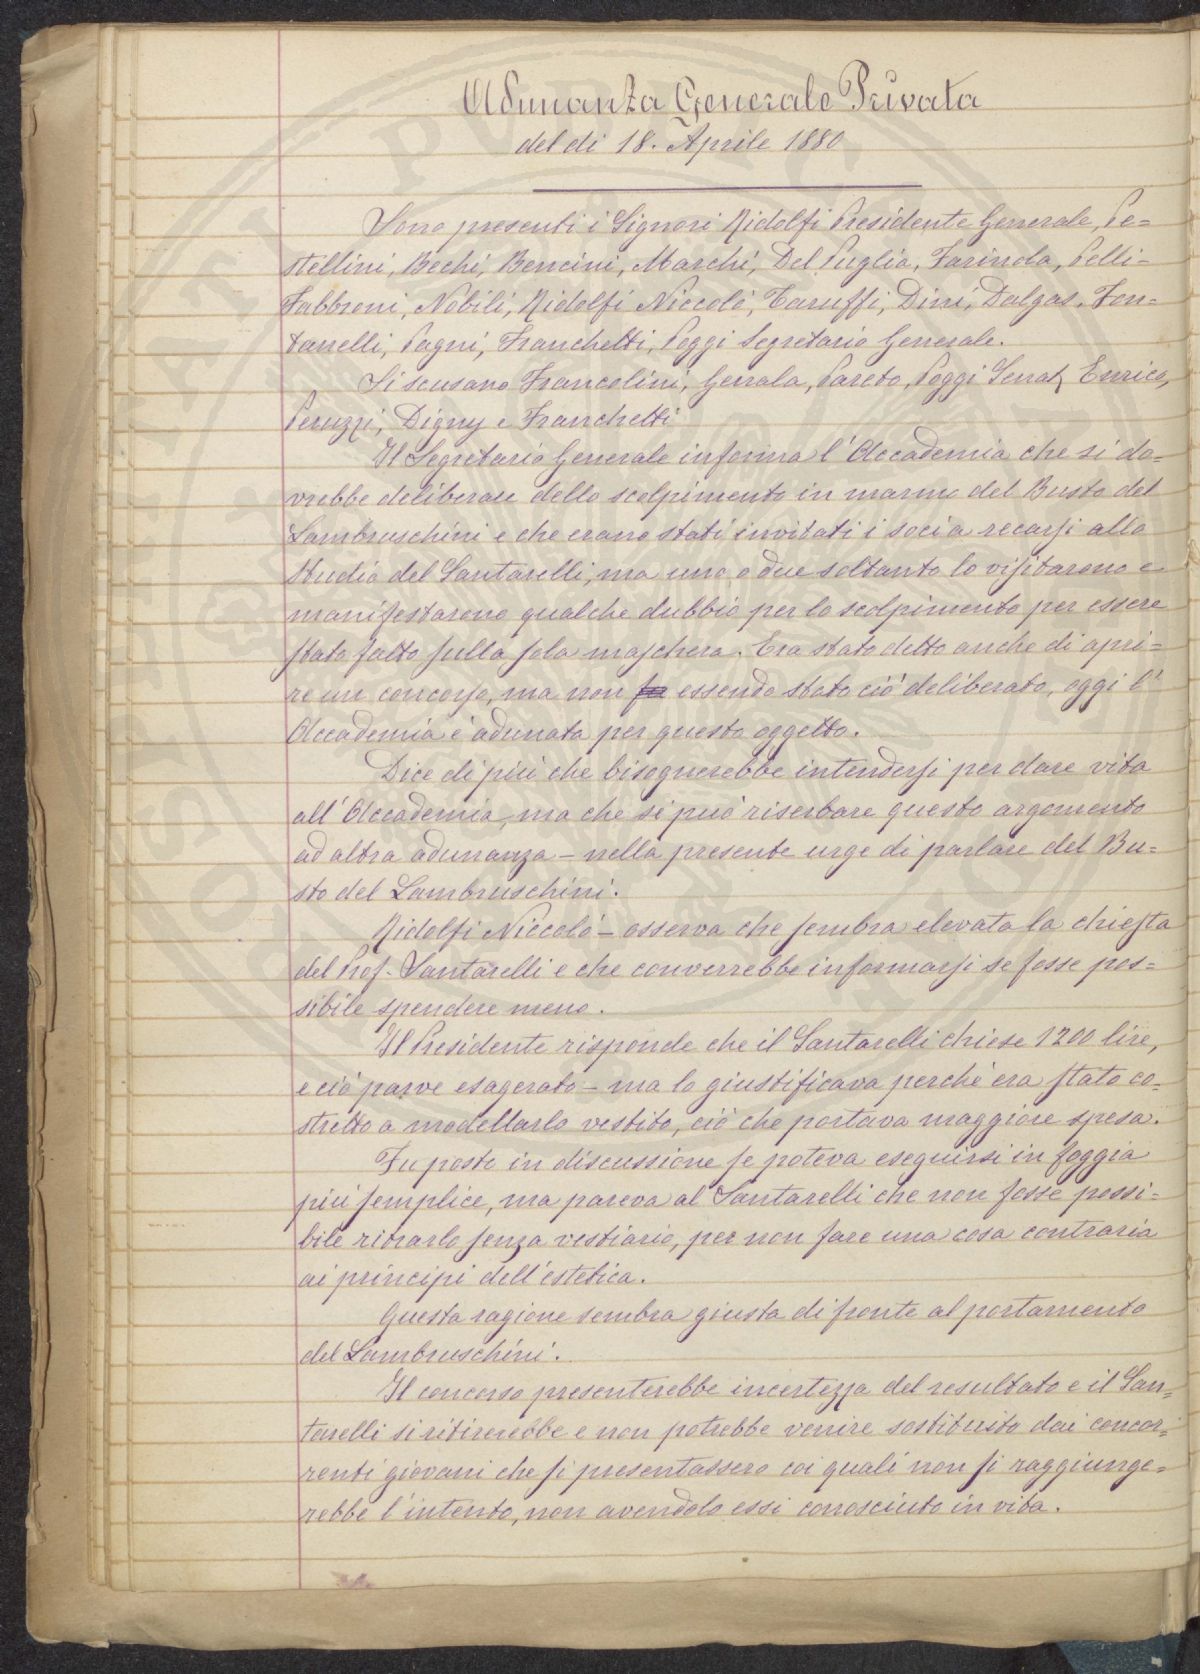 Adunanza Generale Privata
del di 18. Aprile 1880
Sono presenti i Signori Ridolfi Presidente Generale, Pe=
stellini, Bechi, Bencini, Marchi, Del Puglia, Farinola, Pelli=
Fabbroni, Nobili, Ridolfi Niccolò, Taruffi, Dini, Dalgas, Fon=
tanelli, Pagni, Franchetti, Poggi Segretario Generale.
Si scusano Francolini, Gerrala, Pareto, Poggi Senat. Enrico,
Peruzzi, Digny e Franchetti
Il Segretario Generale informa l'Accademia che si do=
vrebbe deliberare dello scolpimento in marmo del Busto del
Lambruschini e che erano stati invitati i soci a recarsi allo
Studio del Santarelli, ma uno o due soltanto lo visitarono e
manifestarono qualche dubbio per lo scolpimento per essere
stato fatto sulla sola maschera. Era stato detto anche di apri=
re un concorso, ma non essendo stato ciò deliberato, oggi l'
Accademia è adunata per questo oggetto.
Dice di più che bisognerebbe intendersi per dare vita
all'Accademia, ma che si può riserbare questo argomento
ad altra adunanza - nella presente urge di parlare del Bu=
sto del Lambruschini.
Ridolfi Niccolò - osserva che sembra elevata la chiesta
del Prof. Santarelli e che converrebbe informarsi se fosse pos=
sibile spendere meno.
Il Presidente risponde che il Santarelli chiese 1200 lire,
e ciò parve esagerato - ma lo giustificava perchè era stato co=
stretto a modellarlo vestito, ciò che portava maggiore spesa.
Fu posto in discussione se poteva eseguirsi in foggia
più semplice, ma pareva al Santarelli che non fosse possi=
bile ritrarlo senza vestiario, per non fare una cosa contraria
ai principi dell'estetica.
Questa ragione sembra giusta di fronte al portamento
del Lambruschini.
Il concorso presenterebbe incertezza del resultato e il San=
tarelli si ritirerebbe e non potrebbe venire sostituito dai concor=
renti giovani che si presentassero coi quali non si raggiunge=
rebbe l'intento, non avendolo essi conosciuto in vita.